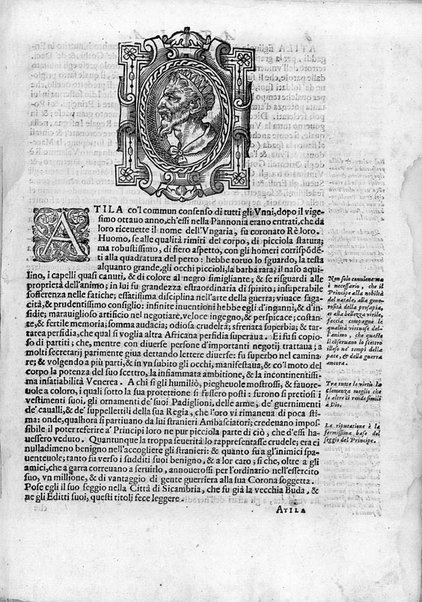 ATILA co'l commun consenso di tutti gli Vnni, dopo il vige-
simo ottauo anno, ch'essi nella Pannonia erano entrati, che da
loro riceuette il nome dell'Vngaria, fu coronato Rè loro.
Huomo, se alle qualità rimiri del corpo, di picciola statura;
ma robustissimo, di fiero aspetto, con gli homeri corrispõdē
ti alla quadratura del petto: hebbe toruo lo sguardo, la testa
alquanto grande, gli occhi piccioli, la barba rara, il naso aqui
lino, i capelli quasi canuti, & di color al negro simigliante; & se risguardi alle
proprietà dell'animo; in lui fu grandezza estraordinaria di spirito; insuperabile
sofferenza nelle fatiche; esattissima disciplina nell'arte della guerra; viuace saga-
cità, & prudentissimo consiglio; infinite inuentioni hebbe egli d'inganni, & d'in-
sidie; marauiglioso artificio nel negotiare, veloce ingegno, & perspicace; pronta,
& fertile memoria; somma audacia; odiosa crudeltà; sfrenata superbia; & tar-
tarea perfidia, che a sua voglia altra Africana perfidia superaua. Ei fu sì copio-
so di partiti; che, mentre con diuerse persone d'importanti negotij trattaua; a
molti secretarij parimente giua dettando lettere diuerse: fu superbo nel camina-
re; & volgendo a più parti, & in vn subito gli occhi, manifestaua, & co'l moto del
corpo la potenza del suo scettro, la infiammata ambitione, & la incontinentissi-
ma insatiabilità Venerea. A chi se gli humiliò, piegheuole mostrossi, & fauore-
uole a coloro, i quali sotto la sua protettione si fussero posti: furono sì pretiosi i
vestimenti suoi, gli ornamenti de' suoi Padiglioni, delle arme, de' guernimenti
de' caualli, & de' suppellettili della sua Regia, che l'oro vi rimaneua di poca sti-
ma: onde, qualhora si partiuano da lui stranieri Ambasciatori; credeuano impossi-
bile il poter referire a' Principi loro ne pur picciola parte di ciò, che d'essi ha-
uessero veduto. Quantunque la troppa seuerità lo rappresentasse crudele; era ei
nulladimeno benigno nell'accogliere gli stranieri: & quanto fu a gl'inimici spa-
uenteuole; tanto fu verso i sudditi suoi benigno, & a lor caro; sì che, oltre a gli
amici, che a garra concorreano a seruirlo, annouerossi per l'ordinario nell'essercito
suo, vn millione, & di vantaggio di gente guerriera alla sua Corona soggetta.
Pose egli il suo seggio nella Città di Sicambria, che fu già la vecchia Buda, &
ne gli Editti suoi, questi titoli fece leggere.
ATILA
Non solo conuiensi, ma
è necessario, che il
Principe alla nobiltà
del natale, alla gene-
rosità della prosapia,
e alla bellezza virile,
faccia compagne le
qualità virtuose del-
l'animo, che questi
il constituiscono lo scettro
illustre ne' tempi della
pace, & della
guerra ancora.
Tra tutte le virtù la
Clemenza è quella
che in altri si rende simili
a Dio.
La riputatione è la
fermissima base del
seggio del Principe.